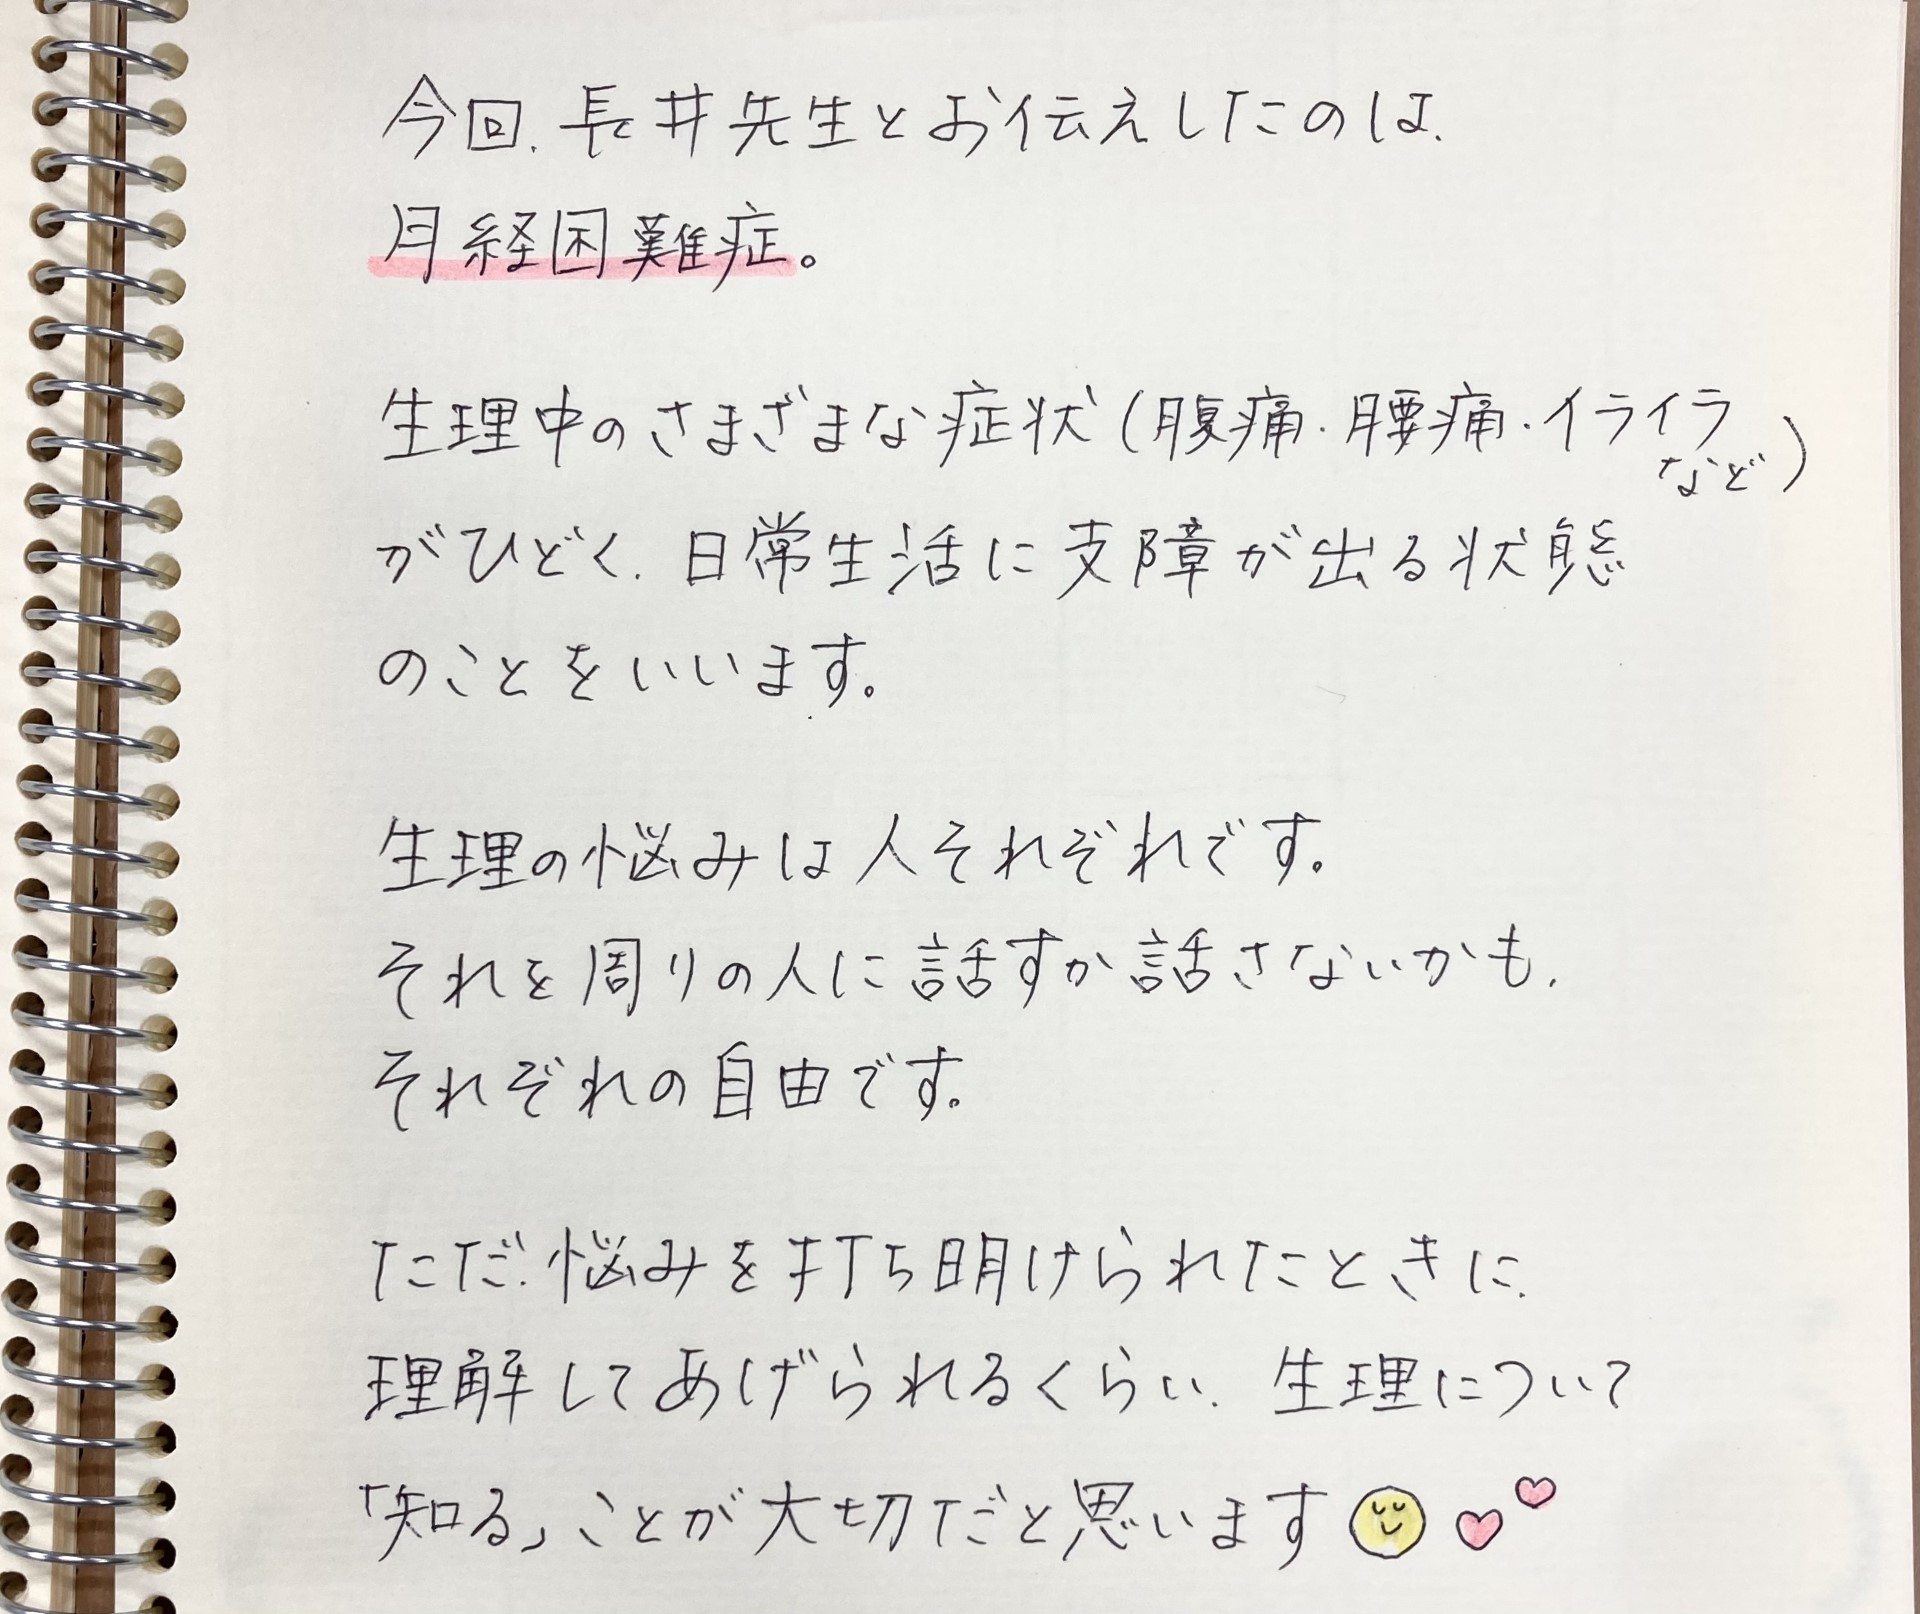 今回、長井先生とお伝えしたのは、
月経困難症。
生理中のさまざまな症状(腹痛・腰痛・イライラなど)
がひどく、日常生活に支障が出る状態
のことをいいます。
生理の悩みは人それぞれです。
それを周りの人に話すか話さないかも、
それぞれの自由です。
ただ、悩みを打ち明けられたときに、
理解してあげられるくらい、生理について
「知る」ことが大切だと思います